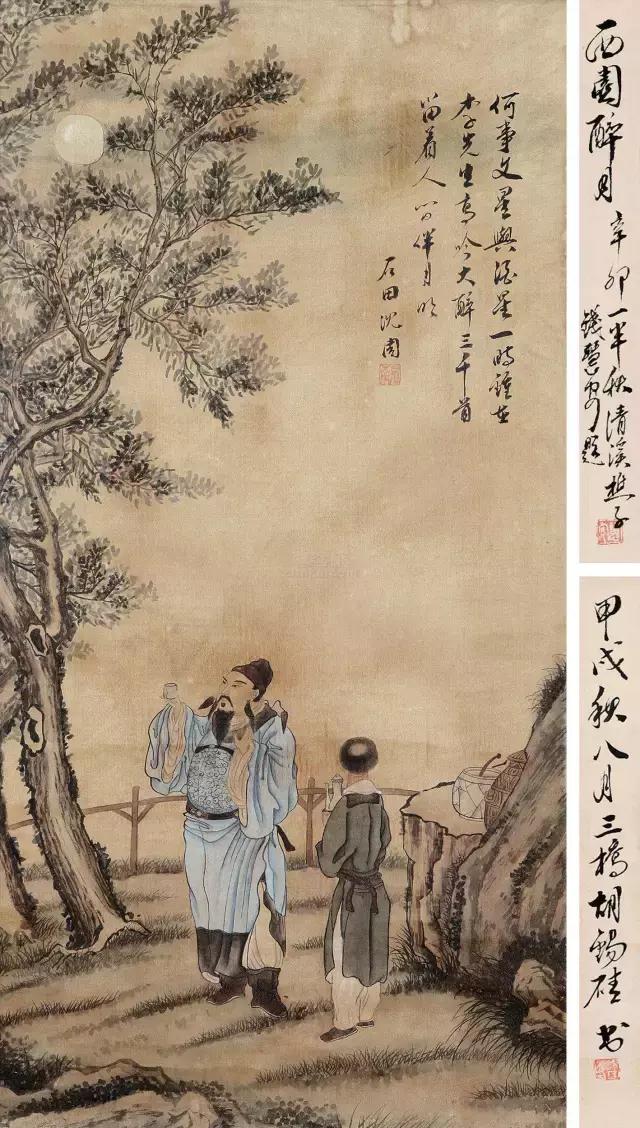 何事文星與酒星一時鍾在
李先生高吟大醉三千首
留着人间伴月明
石田沈周
西園醉月
辛卯一半秋清溪樵子
錢慧安題
甲戌秋八月三橋胡錫珪書